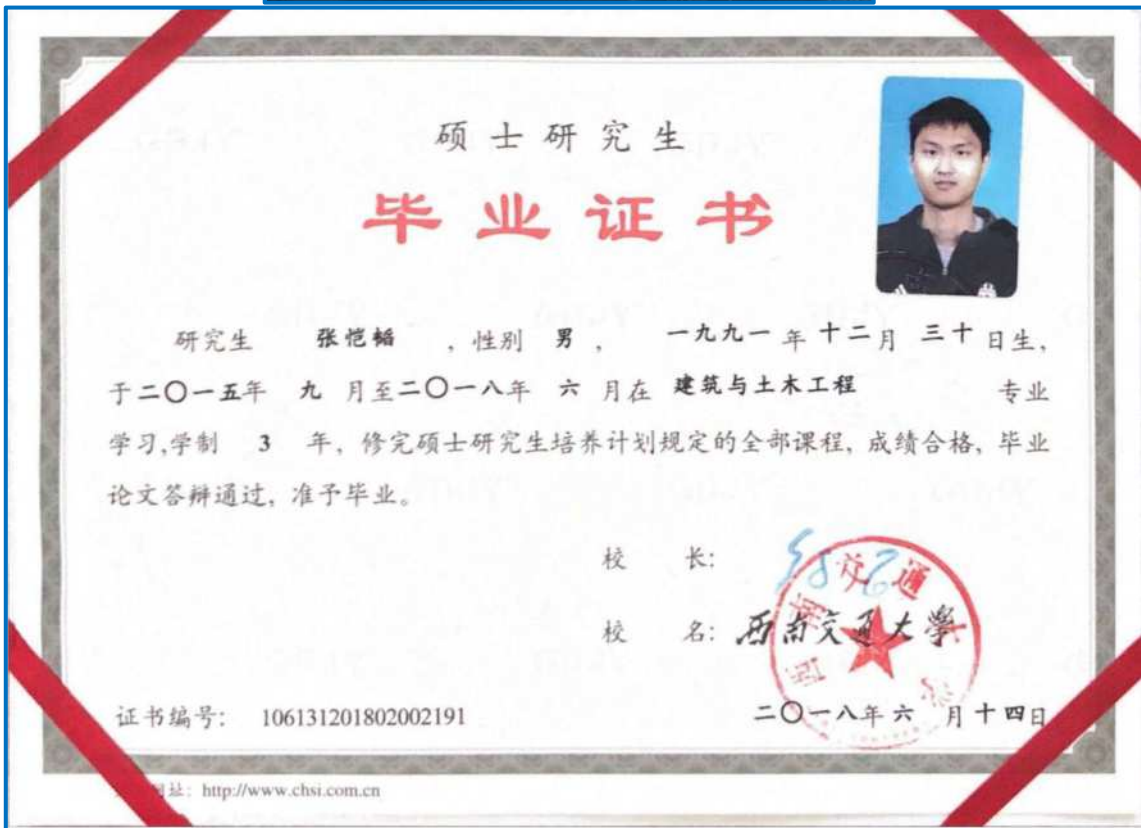 硕士研究生
毕业证书
研究生 张恺韬 ，性别 男 ， 一九九一 年 十二 月 三十 日生，
于二〇一五年 九 月至二〇一八年 六 月在 建筑与土木工程 专业
学习,学制 3 年，修完硕士研究生培养计划规定的全部课程，成绩合格，毕业
论文答辩通过，准予毕业。
校 长：
校 名：西南交通大學
证书编号： 106131201802002191
二〇一八年 六 月十四日
网址：http://www.chsi.com.cn